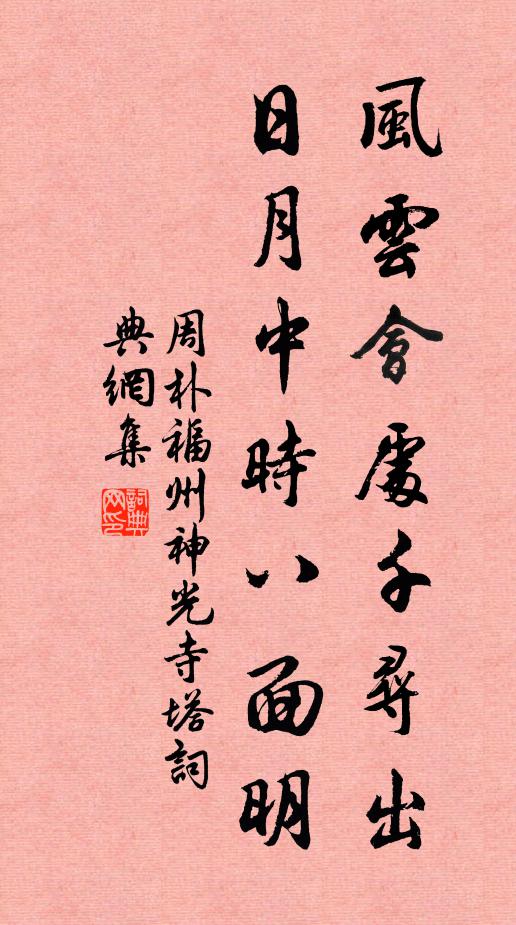 風雲會處千尋出
日月中時八面明
周朴福州神光寺塔詞
典網集
詞典網印